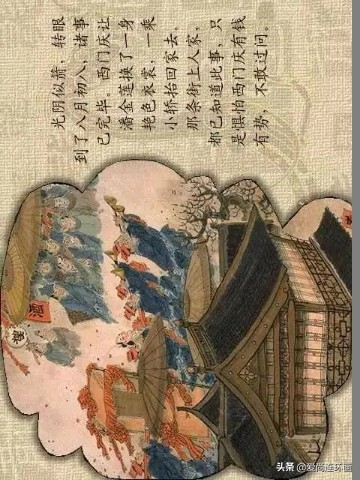 光阴似箭，转眼
到了八月初八，诸事
已完毕。西门庆让
潘金莲换了一身
艳色衣裳，一乘
小轿抬回家去。
那条街上人家，
都已知道此事，只
是惧怕西门庆有钱
有势，不敢过问。
酒
头条 @爱尚连环画